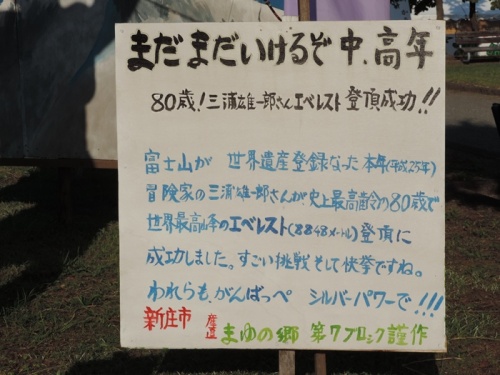 まだまだいけるぞ中、高年
80歳!三浦雄一郎さんエベレスト登頂成功!!
富士山が 世界遺産登録なった本年(平成25年)
冒険家の三浦雄一郎さんが史上最高齢の80歳で
世界最高峰のエベレスト(8848メートル)登頂に
成功しました。すごい挑戦そして快挙ですね。
われらも、がんばっぺ シルバーパワーで!!!
新庄市 産直 まゆの郷 第7ブロック謹作